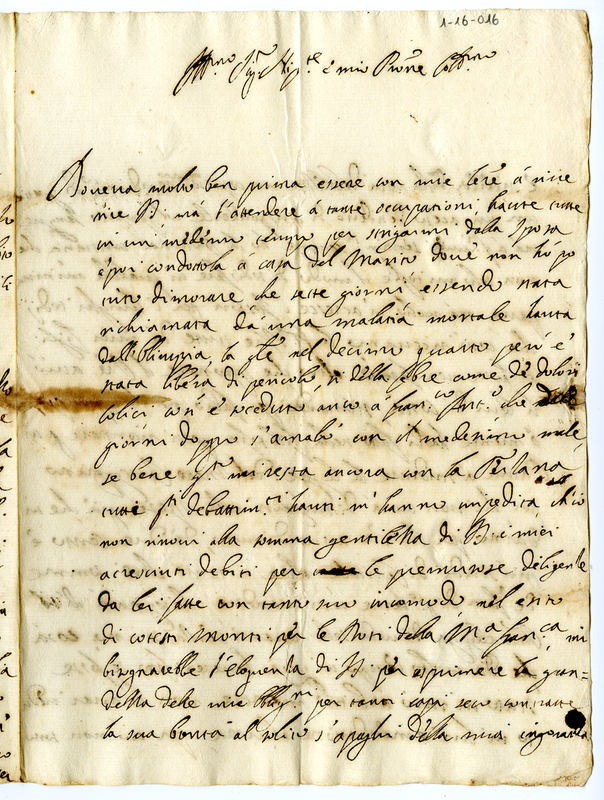 1-16-016
Ill.mo Sig.r Nip.te e mio Prone Col.mo
Doueua molto ben prima essere con mie lre à riue
rire V.S. mà l'attendere à tante occupationi haute tutte
in un medemo tempo per sbrigarmi dalla sposa
e poi condottola à casa del Marito doue non hò po
tuto dimorare che sette giorni essendo stata
richiamata dà una malatia mortale hauta
dall'Olimpia, la qle nel decimo quarto però è
stata libera di pericolo, si della febre come de dolori
colici, così è soceduto anco à Fran.co Ant.o che
giorni doppo s'amalò con il medemo male,
se bene q.to mi resta ancora con la
tutti q.ti debattim.ti hauti m'hanno impedita ch'io
non rinoui alla somma gentilezza di V.S. i miei
acresciuti debiti per le premurose diligenze
da lei fatte con tanto suo incomodo nel esito
di cotesti Monti per le Doti della M.a Fran.ca mi
bisognarebbe l'eloquenza di V.S. per esprimere la gran=
dezza dele mie oblig.ni per tanti capi seco contratte
la sua bontà al solito s'apaghi della mia ignoranza